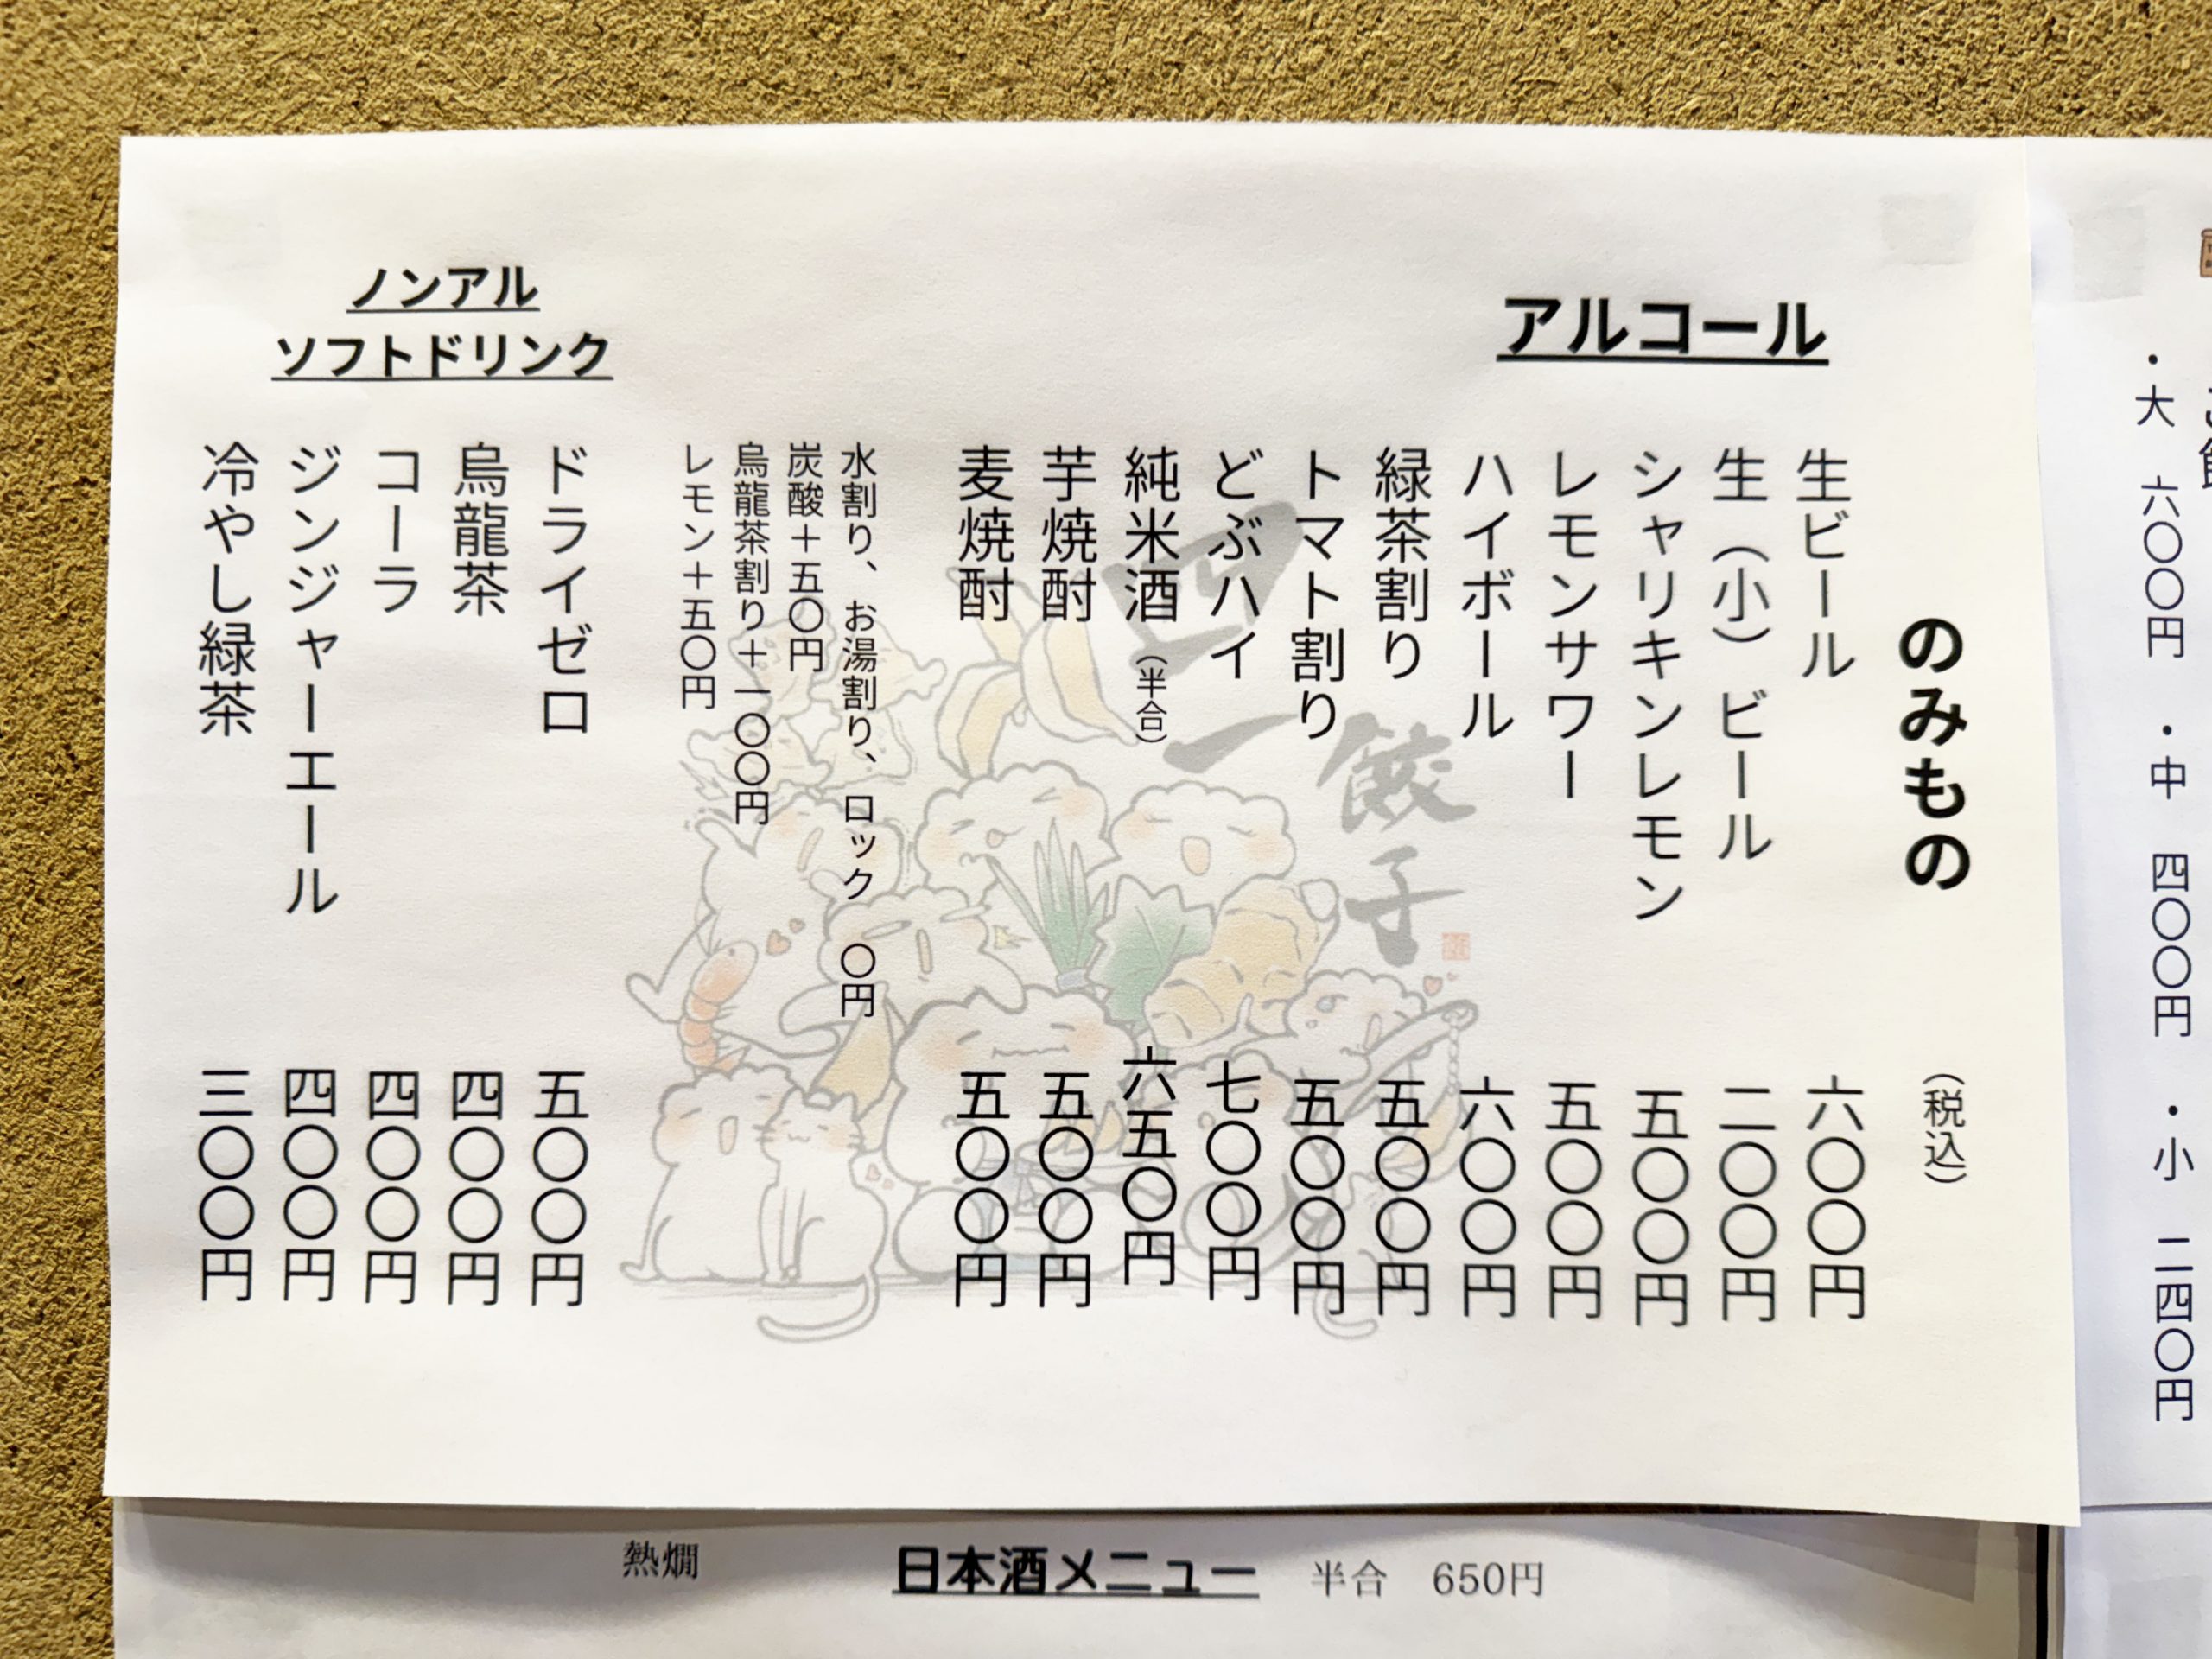 のみもの（税込）
アルコール
生ビール 六〇〇円
生（小）ビール 二〇〇円
シャリキンレモン 五〇〇円
レモンサワー 五〇〇円
ハイボール 六〇〇円
緑茶割り 五〇〇円
トマト割り 五〇〇円
どぶハイ 七〇〇円
純米酒（半合） 六五〇円
芋焼酎 五〇〇円
麦焼酎 五〇〇円
水割り、お湯割り、ロック 〇円
炭酸＋五〇円
烏龍茶割り＋一〇〇円
レモン＋五〇円
ノンアル
ソフトドリンク
ドライゼロ 五〇〇円
烏龍茶 四〇〇円
コーラ 四〇〇円
ジンジャーエール 四〇〇円
冷やし緑茶 三〇〇円
餃子
・大 六〇〇円 ・中 四〇〇円 ・小 二四〇円
熱燗
日本酒メニュー 半合 650円